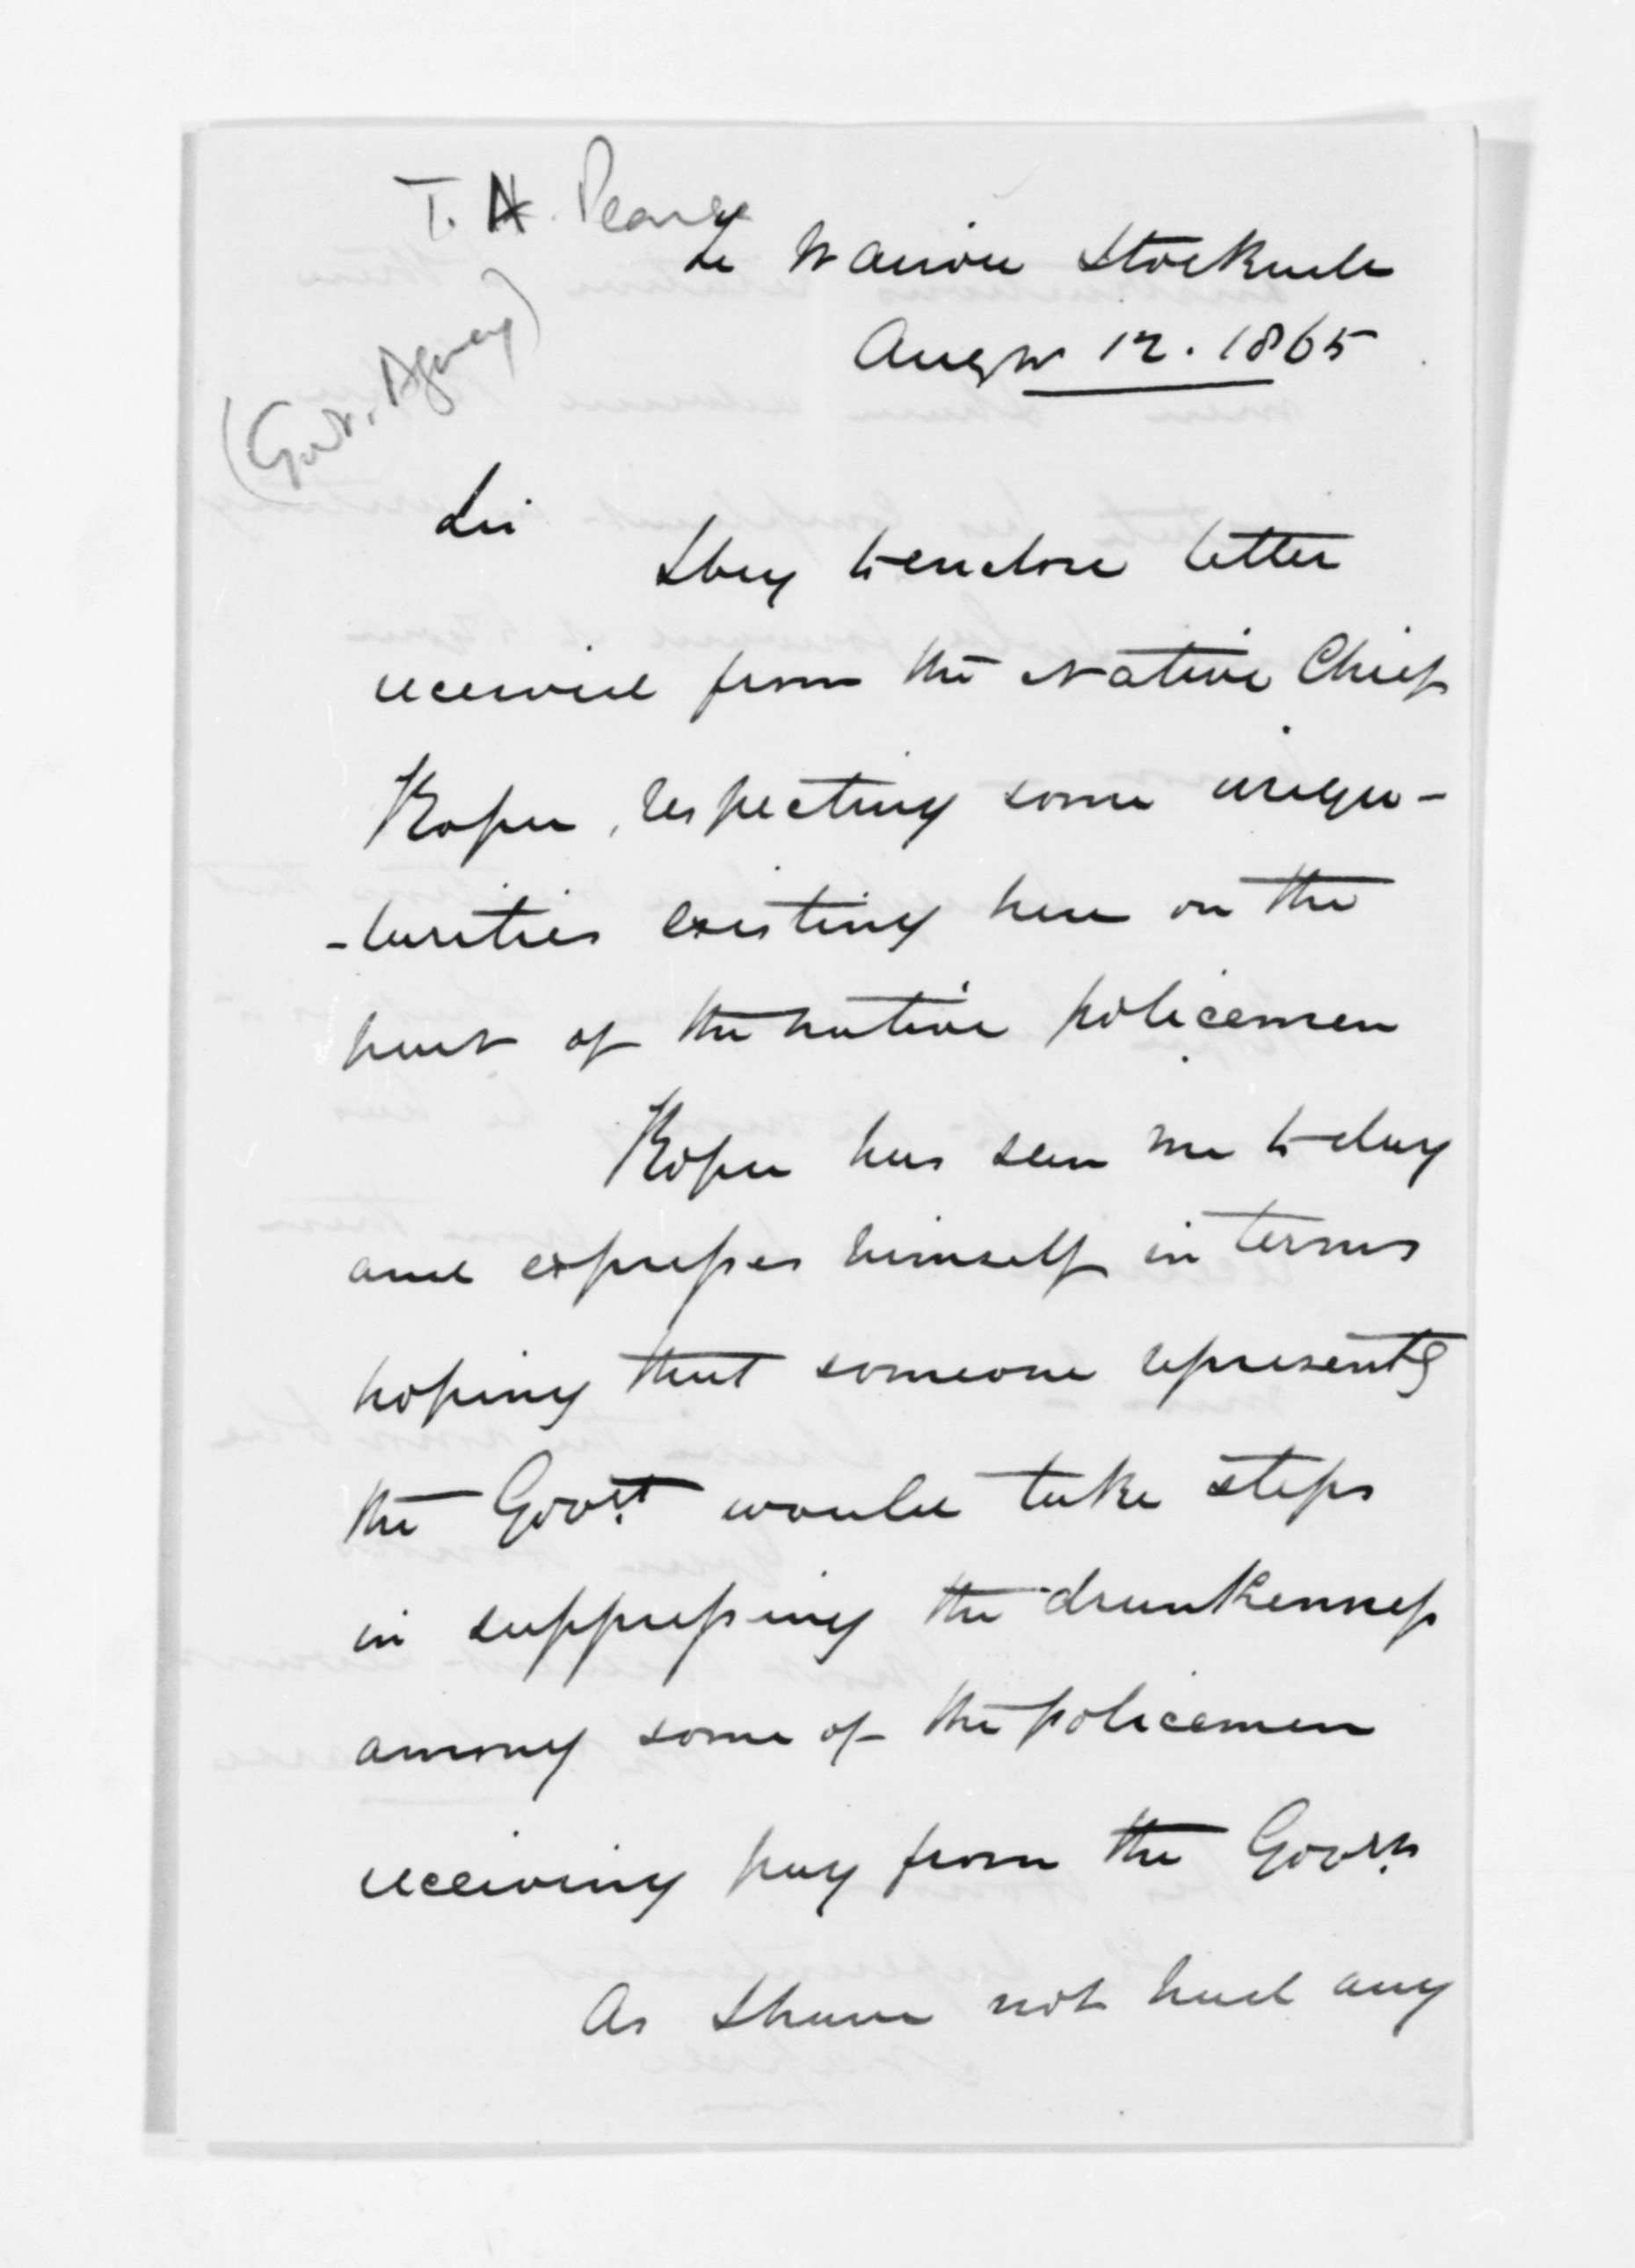 T. H. Pearse
Te Wairoa Stockade
Augst 12. 1865
(Govt. Agency)
Sir
I beg to enclose letter
received from the Native Chief
Kopu, respecting some irregu-
-larities existing here on the
part of the native policemen
Kopu has seen me to day
and expresses himself in terms
hoping that someone representg
the Govt. would take steps
in suppressing the drunkenness
among some of the policemen
receiving pay from the Govt.
As I have not had any